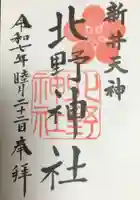 新井天神
北野神社
令和七年睦月二十二日奉拝
北野
神社